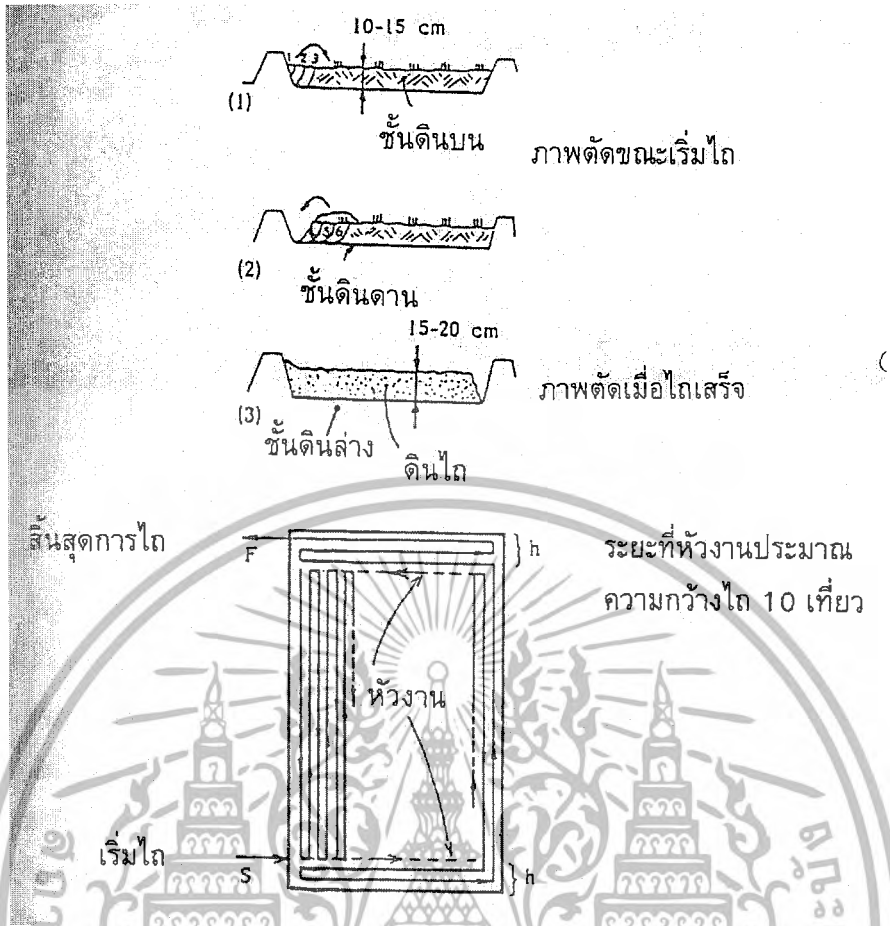 10-15 cm
1 2 3
(1)
ชั้นดินบน
ภาพตัดขณะเริ่มไถ
5 6
(2)
ชั้นดินดาน
15-20 cm
(3)
ภาพตัดเมื่อไถเสร็จ
ชั้นดินล่าง
ดินไถ
สิ้นสุดการไถ
F
h
ระยะที่หัวงานประมาณ
ความกว้างไถ 10 เที่ยว
หัวงาน
เริ่มไถ
S
h